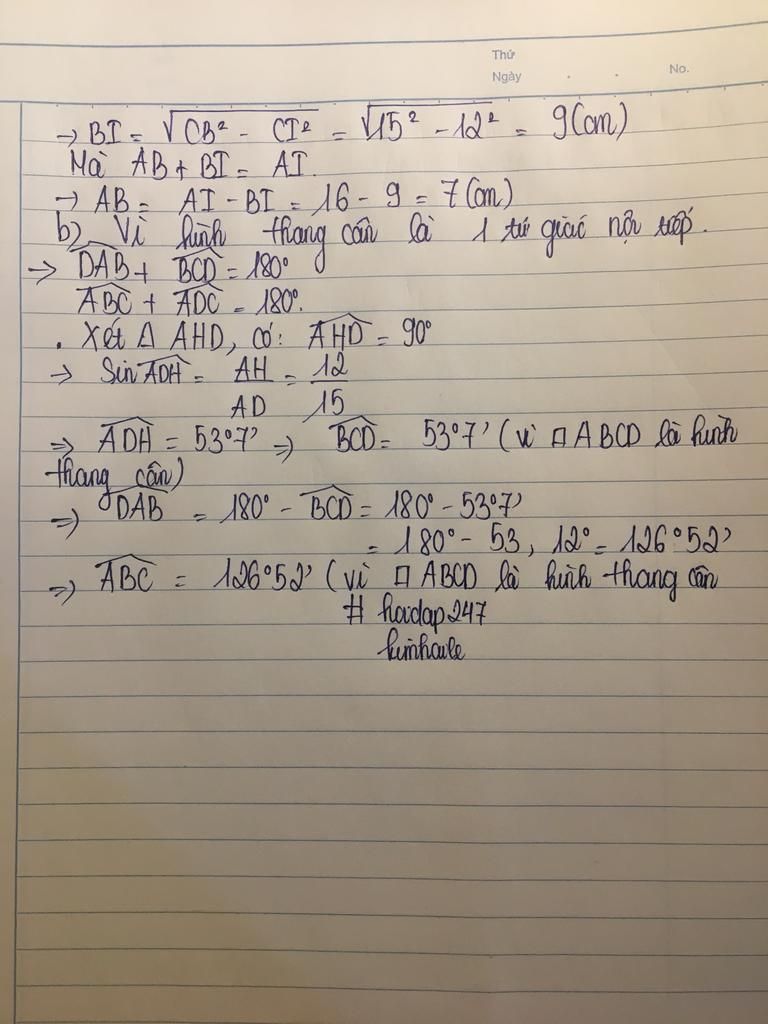 Thứ
Ngày . . No.
→ BI = √CB² - CI² = √15² - 12² = 9(cm)
Mà AB + BI = AI.
→ AB = AI - BI = 16 - 9 = 7(cm)
b) Vì hình thang cân là 1 tứ giác nội tiếp.
→ DAB + BCD = 180°
ABC + ADC = 180°.
. Xét Δ AHD, có: AHD = 90°
→ Sin ADH = AH/AD = 12/15
=> ADH = 53°7' => BCD = 53°7' (vì □ ABCD là hình
thang cân)
=> DAB = 180° - BCD = 180° - 53°7'
= 180° - 53,12° = 126°52'
=> ABC = 126°52' (vì □ ABCD là hình thang cân
# hoidap247